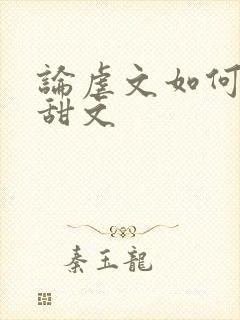 論虐文如何
甜文
秦玉龍